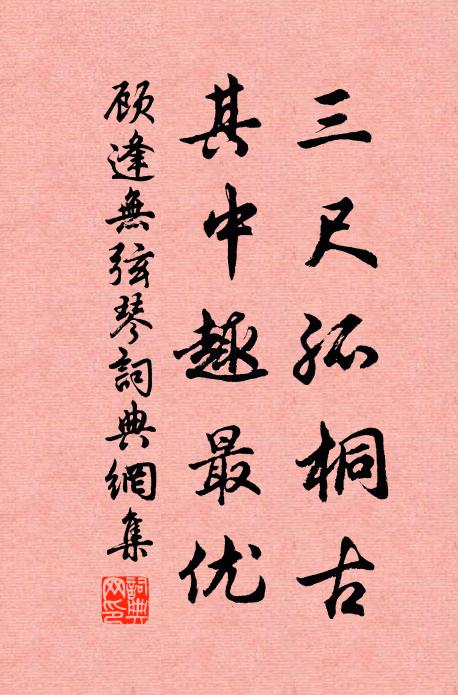 三尺孤桐古
其中趣最优
顾逢無弦琴詞典網集
詞典网印